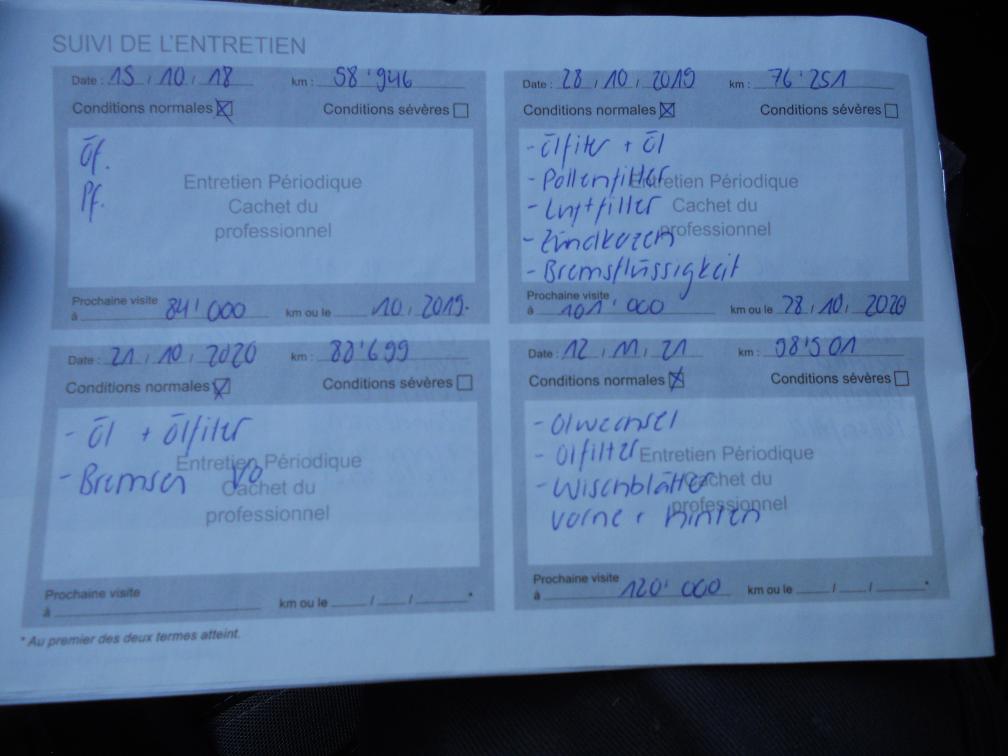 SUIVI DE L'ENTRETIEN
Date : 15 / 10 / 18 km : 58'946
Conditions normales ☒ Conditions sévères ☐
Öf.
Pf.
Entretien Périodique
Cachet du
professionnel
Prochaine visite
à 84'000 km ou le 10 / 2019.
Date : 28 / 10 / 2019 km : 76'251
Conditions normales ☒ Conditions sévères ☐
- Ölfilter + Öl
- Pollenfilter
- Luftfilter
- Zündkerzen
- Bremsflüssigkeit
Entretien Périodique
Cachet du
professionnel
Prochaine visite
à 101'000 km ou le 28 / 10 / 2020
Date : 21 / 10 / 2020 km : 88'699
Conditions normales ☒ Conditions sévères ☐
- Öl + Ölfilter
- Bremsen Vo
Entretien Périodique
Cachet du
professionnel
Prochaine visite
à km ou le / / *
Date : 12 / 11 / 21 km : 98'501
Conditions normales ☒ Conditions sévères ☐
- Ölwechsel
- Ölfilter
- Wischblätter
vorne + hinten
Entretien Périodique
Cachet du
professionnel
Prochaine visite
à 120'000 km ou le / / *
* Au premier des deux termes atteint.